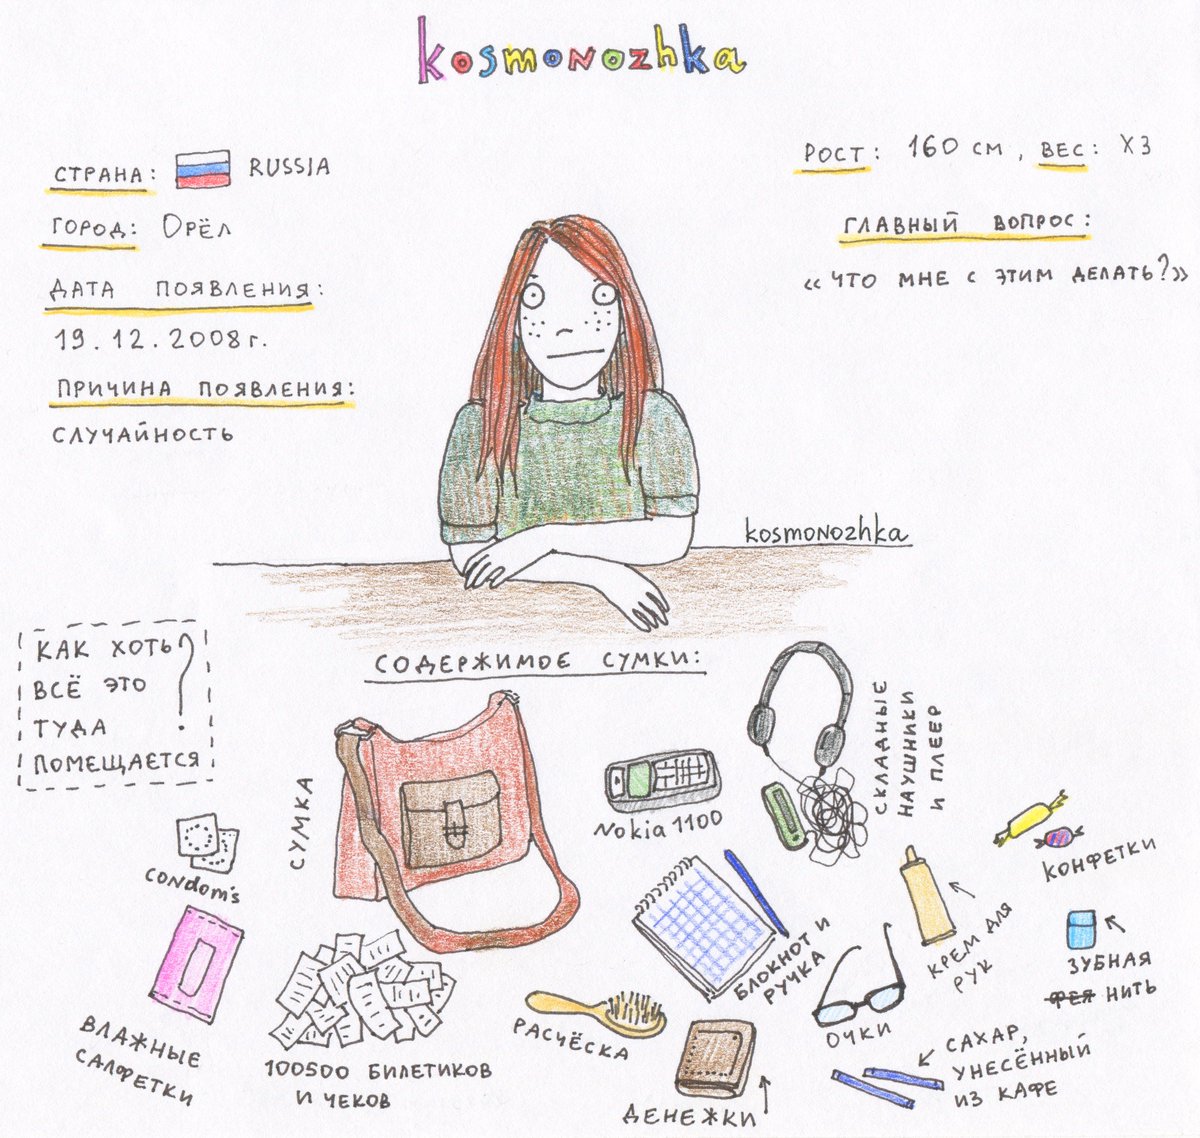 kosmonozhka
СТРАНА: RUSSIA
ГОРОД: ОРЁЛ
ДАТА ПОЯВЛЕНИЯ:
19.12.2008г.
ПРИЧИНА ПОЯВЛЕНИЯ:
СЛУЧАЙНОСТЬ
РОСТ: 160 СМ, ВЕС: ХЗ
ГЛАВНЫЙ ВОПРОС:
«ЧТО МНЕ С ЭТИМ ДЕЛАТЬ?»
kosmonozhka
КАК ХОТЬ
ВСЁ ЭТО
ТУДА
ПОМЕЩАЕТСЯ?
СОДЕРЖИМОЕ СУМКИ:
СУМКА
Nokia 1100
СКЛАДНЫЕ
НАУШНИКИ
И ПЛЕЕР
КОНФЕТКИ
CONDOM'S
БЛОКНОТ И
РУЧКА
КРЕМ ДЛЯ
РУК
ЗУБНАЯ
ФЕЯ НИТЬ
ВЛАЖНЫЕ
САЛФЕТКИ
100500 БИЛЕТИКОВ
И ЧЕКОВ
РАСЧЁСКА
ДЕНЕЖКИ
ОЧКИ
САХАР,
УНЕСЁННЫЙ
ИЗ КАФЕ